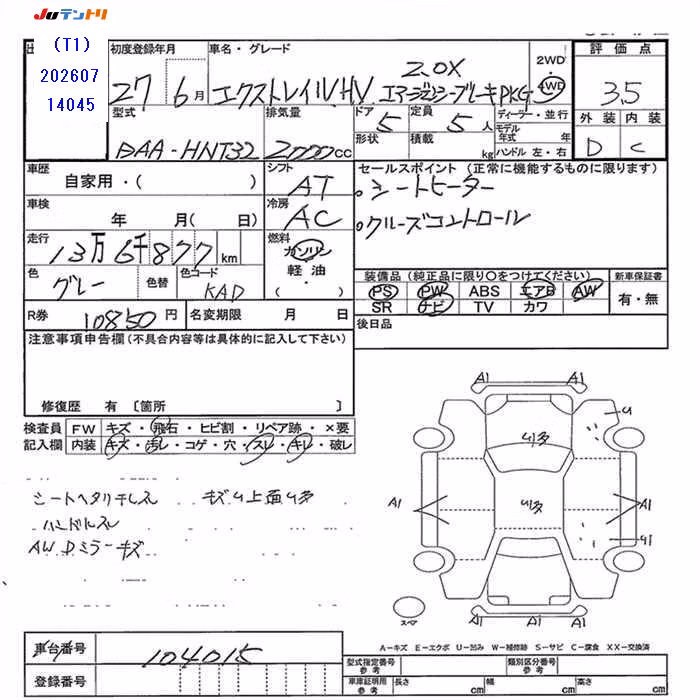 JUテントリ
(T1)
202607
14045
初度登録年月
27 6月
車名・グレード
エクストレイルHV 2.0X エマージェンシーブレーキPKG
2WD
4WD
評価点
3.5
外装 内装
D C
型式
DAA-HNT32
排気量
2000cc
ドア
5
定員
5人
形状
積載
kg
ディーラー・並行
モデル年式 年
ハンドル 左・右
車歴
自家用・( )
シフト
AT
車検
年 月( 日)
冷房
AC
走行
13万6千877km
燃料
ガソリン
軽油
( ・ )
色
グレー
色替
色コード
KAD
R券 10850円
名変期限 月 日
セールスポイント (正常に機能するものに限ります)
。シートヒーター
。クルーズコントロール
装備品 (純正品に限り○をつけてください)
PS PW ABS エアB AW
SR ナビ TV カワ
新車保証書
有・無
後日品
注意事項申告欄 (不具合内容等は具体的に記入して下さい)
修復歴 有 〔箇所 〕
検査員記入欄
FW キズ・飛石・ヒビ割・リペア跡・×要
内装 キズ・汚レ・コゲ・穴・スレ・キレ・破レ
シートヘタリ キレ スレ キズU上面U多
ハンドルスレ
AW Dミラーキズ
A1 A1
U
U多
A1 U多 A1
U1
A1 A1 A1
スペア
A-キズ E-エクボ U-凹み W-補修跡 S-サビ C-腐食 XX-交換済
車台番号 104015
登録番号
型式指定番号 参考
類別区分番号 参考
車庫証明用 参考
長さ cm
幅 cm
高さ cm